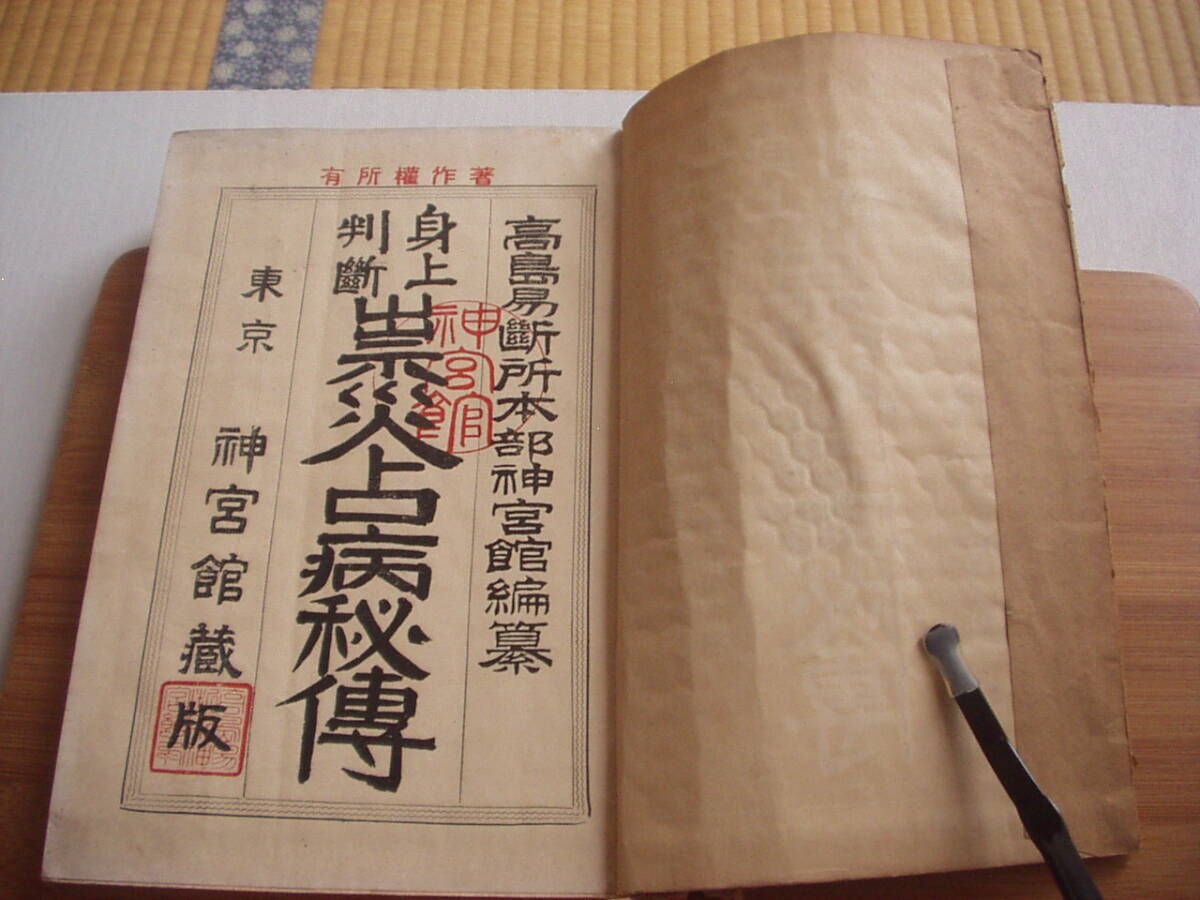 著作權所有
高島易斷所本部神宮館編纂
身上
判斷
祟災占病秘傳
神宮館
東京 神宮館藏版